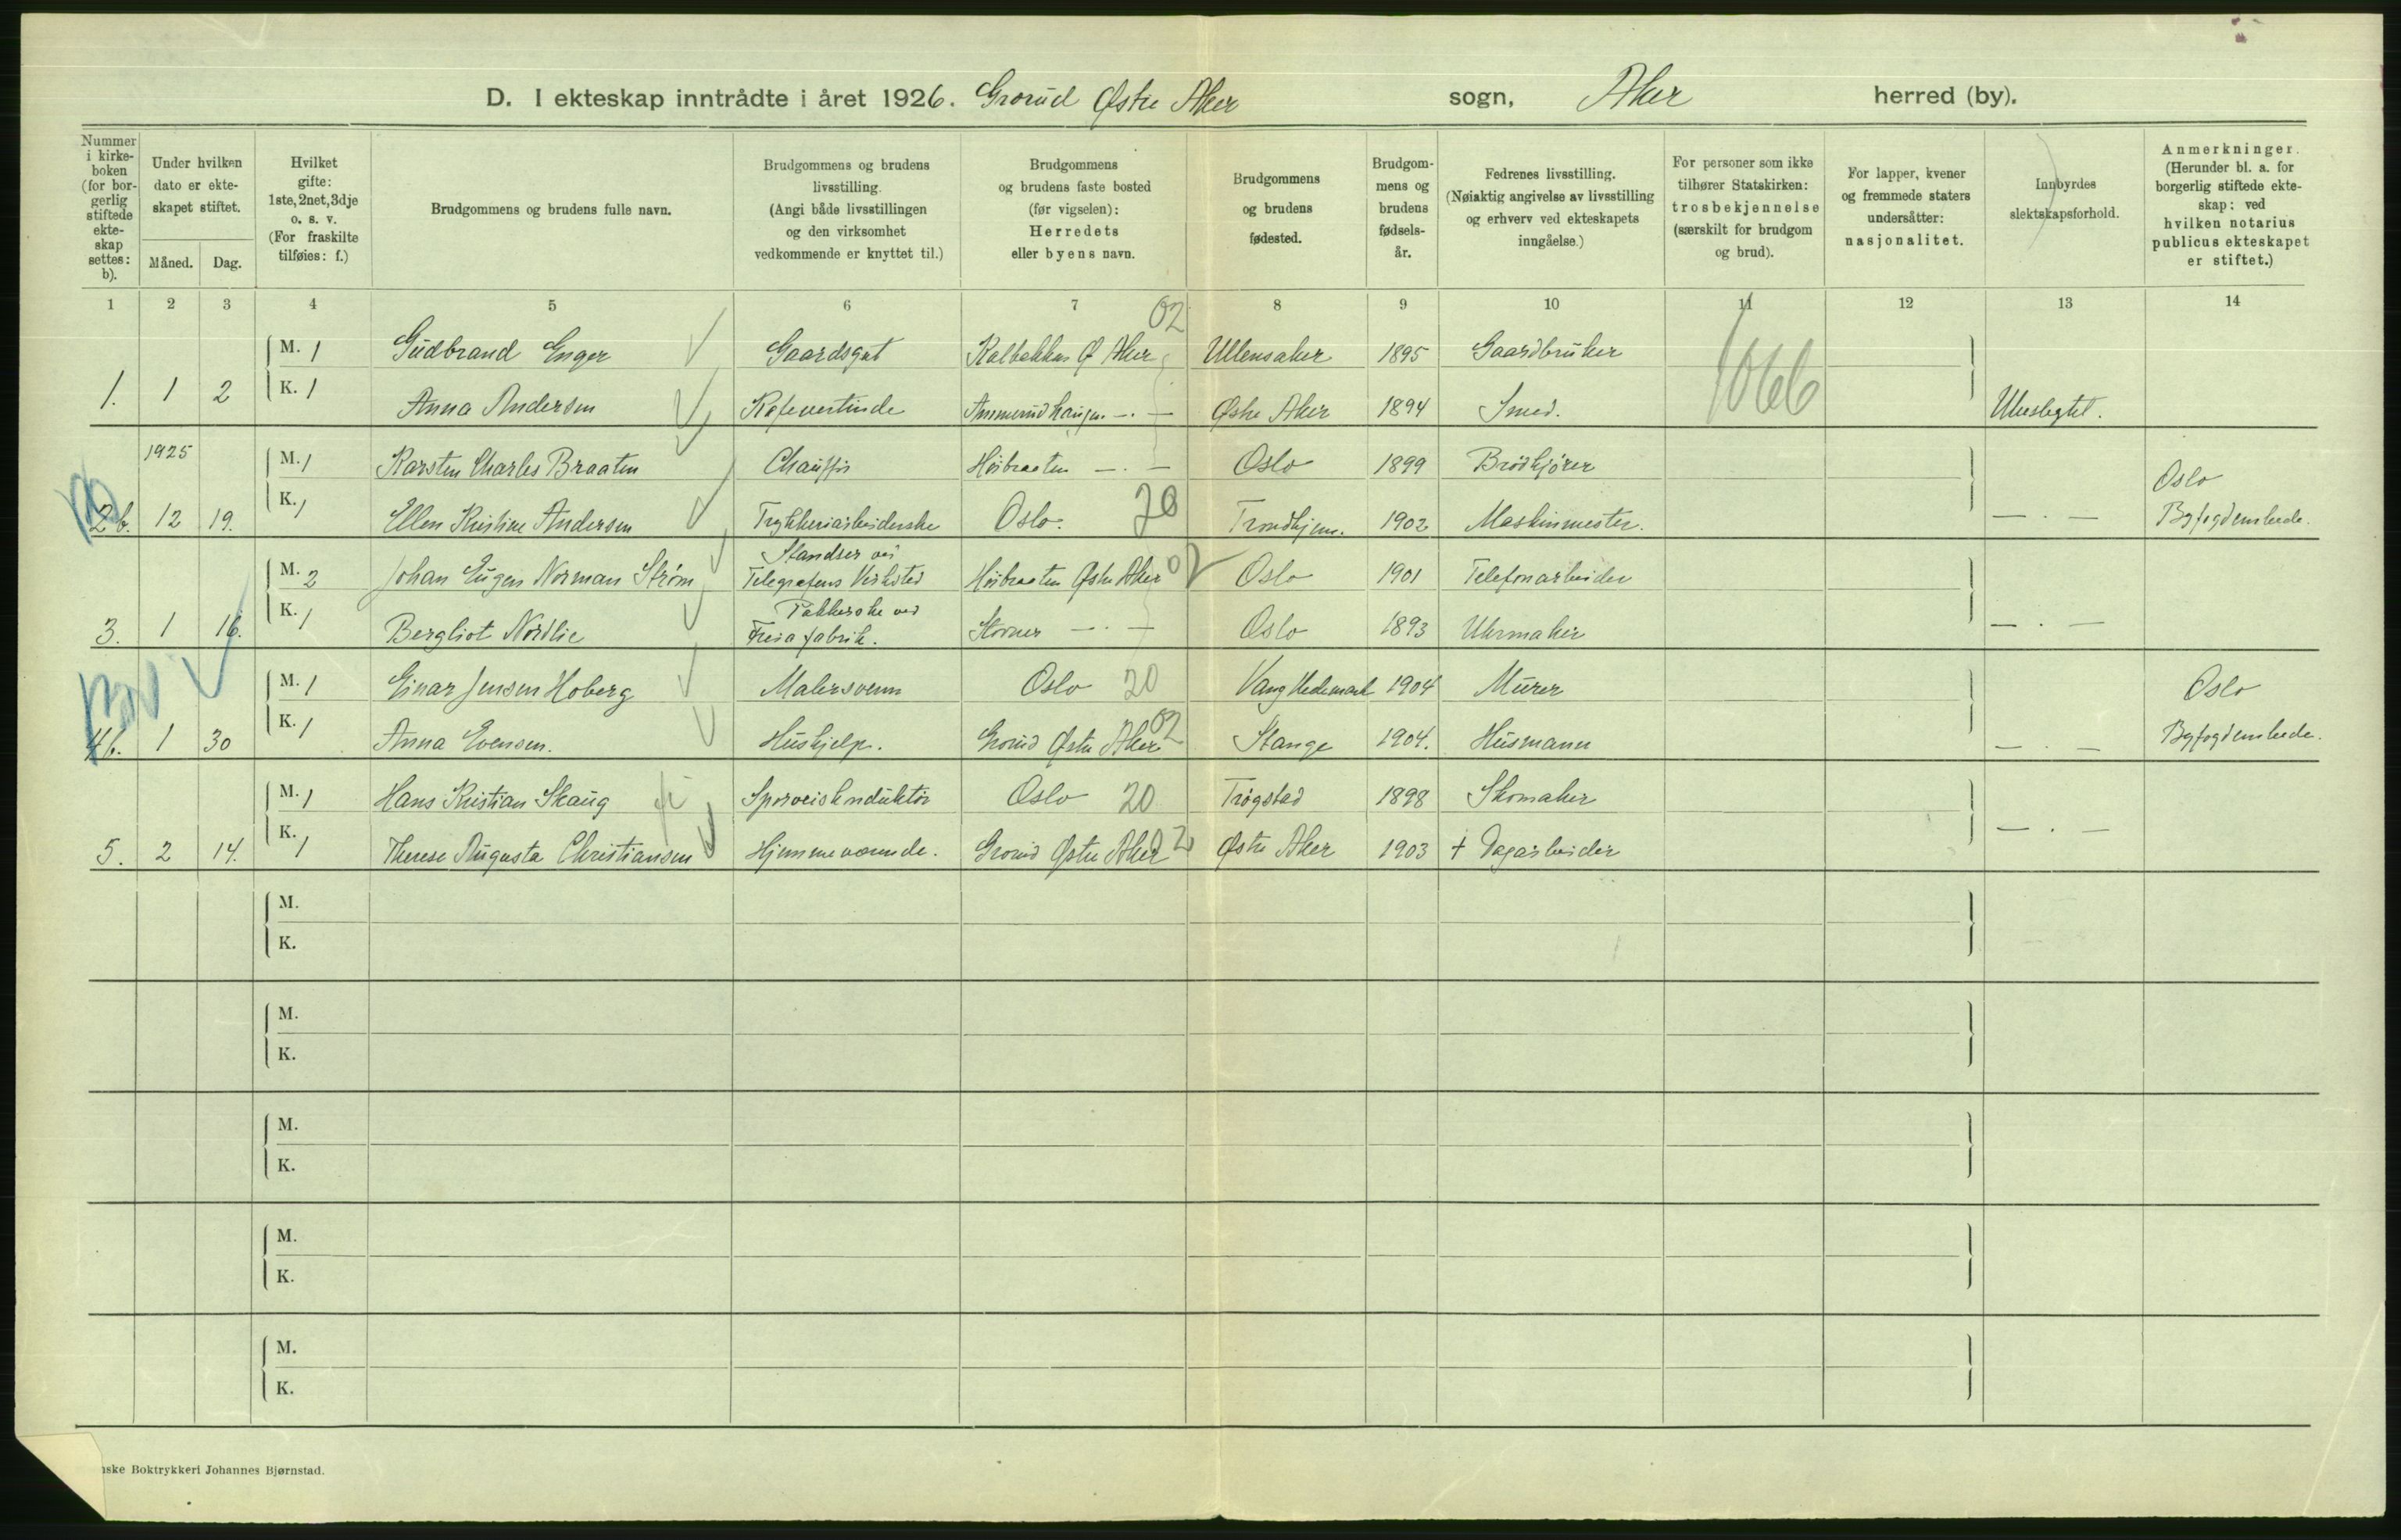 D. I ekteskap inntrådte i året 1926. Grorud Østre Aker sogn, Aker herred (by).
Nummer i kirkeboken (for borgerlig stiftede ekteskap settes: b).
Under hvilken dato er ekteskapet stiftet.
Måned. Dag.
Hvilket gifte: 1ste, 2net, 3dje o. s. v. (For fraskilte tilføies: f.)
Brudgommens og brudens fulle navn.
Brudgommens og brudens livsstilling. (Angi både livsstillingen og den virksomhet vedkommende er knyttet til.)
Brudgommens og brudens faste bosted (før vigselen): Herredets eller byens navn.
Brudgommens og brudens fødested.
Brudgommens og brudens fødselsår.
Fedrenes livsstilling. (Nøiaktig angivelse av livsstilling og erhverv ved ekteskapets inngåelse.)
For personer som ikke tilhører Statskirken: trosbekjennelse (særskilt for brudgom og brud).
For lapper, kvener og fremmede staters undersåtter: nasjonalitet.
Innbyrdes slektskapsforhold.
Anmerkninger. (Herunder bl. a. for borgerlig stiftede ekteskap: ved hvilken notarius publicus ekteskapet er stiftet.)
1 2 3 4 5 6 7 8 9 10 11 12 13 14
02
M. 1 Gudbrand Enger Gaardsgut Kalbakken Ø Aker Ullensaker 1895 Gaardbruker
1066
1. 1 2 K. 1 Anna Andersen Kafevertinde Ammerudhaugen — . — Østre Aker 1894 Smed. Ubeslegtet.
1925 M. 1 Karsten Charles Braaten Chauffør Høibraaten — . — Oslo 1899 Brødkjører Oslo
2 b. 12 19. K. 1 Ellen Kristine Andersen Trykkeriarbeiderske Oslo. 20 Trondhjem. 1902 Maskinmester. — . — Byfogdembede.
Standser ved
M. 2 Johan Eugen Norman Strøm Telegrafens Verksted Høibraaten Østre Aker 02 Oslo 1901 Telefonarbeider
Pakkerske ved
3. 1 16. K. 1 Bergliot Nordlie Freia fabrik. Stovner — . — Oslo 1893 Uhrmaker — . —
M. 1 Einar Jensen Hoberg Malersvenn Oslo 20 Vang Hedemark 1904 Murer Oslo
4 b. 1 30 K. 1 Anna Evensen. Hushjelp. Grorud Østre Aker 02 Stange 1904. Husmann — . — Byfogdembede.
M. 1 Hans Kristian Skaug Sporveiskonduktør Oslo 20 Trøgstad 1898 Skomaker
5. 2 14. K. 1 Therese Augusta Christiansen Hjemmeværende. Grorud Østre Aker 02 Østre Aker 1903 + Dagarbeider — . —
M.
K.
M.
K.
M.
K.
M.
K.
M.
K.
nske Boktrykkeri Johannes Bjørnstad.